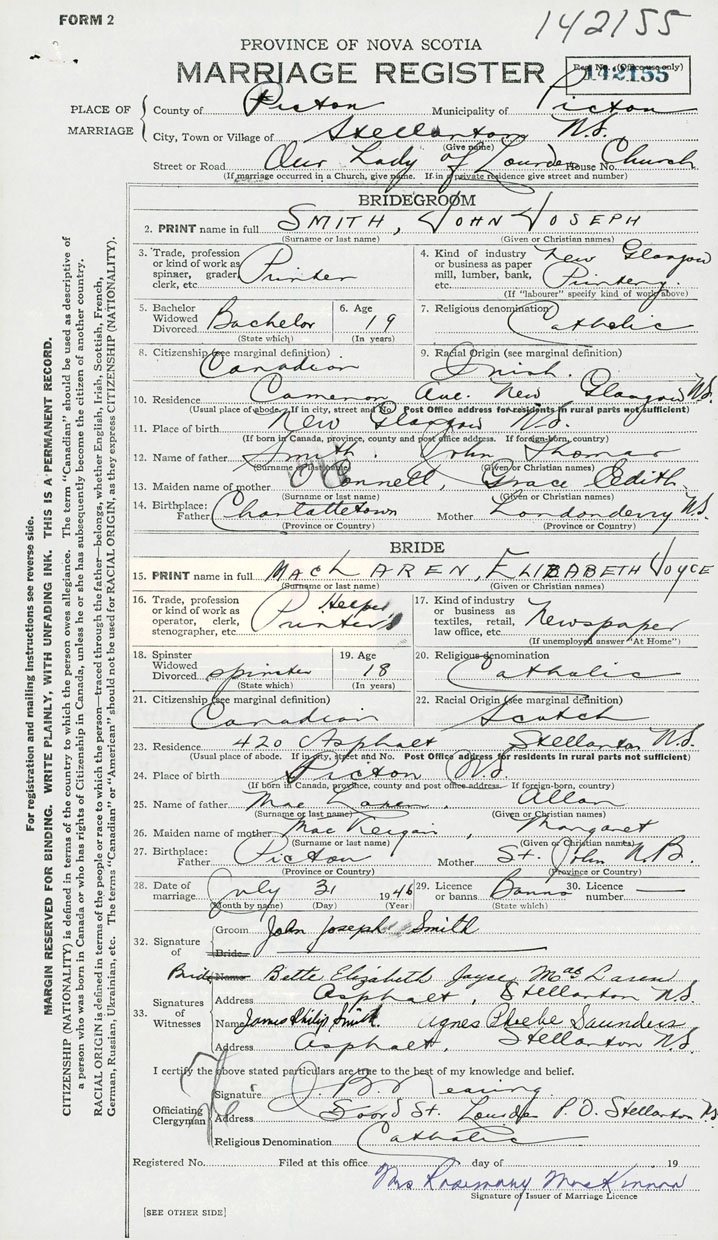 FORM 2
142155
PROVINCE OF NOVA SCOTIA
MARRIAGE REGISTER
Reg. No. (Office use only)
142155
PLACE OF MARRIAGE
County of Pictou Municipality of Pictou
City, Town or Village of Stellarton N.S.
(Give name)
Street or Road Our Lady of Lourdes House No. Church
(If marriage occurred in a Church, give name. If in a private residence give street and number)
BRIDEGROOM
2. PRINT name in full SMITH, JOHN JOSEPH
(Surname or last name) (Given or Christian names)
3. Trade, profession or kind of work as spinner, grader, clerk, etc. Printer
4. Kind of industry or business as paper mill, lumber, bank, etc. New Glasgow Printery.
(If "labourer" specify kind of work above)
5. Bachelor Widowed Divorced Bachelor
(State which)
6. Age 19
(In years)
7. Religious denomination Catholic
8. Citizenship (see marginal definition) Canadian
9. Racial Origin (see marginal definition) Irish.
10. Residence Cameron Ave. New Glasgow N.S.
(Usual place of abode. If in city, street and No. Post Office address for residents in rural parts not sufficient)
11. Place of birth New Glasgow N.S.
(If born in Canada, province, county and post office address. If foreign-born, country)
12. Name of father Smith. John Thomas
(Surname or last name) (Given or Christian names)
13. Maiden name of mother O'Connell, Grace Edith.
(Given or Christian names)
14. Birthplace: Father Charlottetown Mother Londonderry N.S.
(Province or Country) (Province or Country)
BRIDE
15. PRINT name in full MacLAREN, ELIZABETH JOYCE
(Surname or last name) (Given or Christian names)
16. Trade, profession or kind of work as operator, clerk, stenographer, etc. Printer's Helper
17. Kind of industry or business as textiles, retail, law office, etc. Newspaper
(If unemployed answer "At Home")
18. Spinster Widowed Divorced spinster
(State which)
19. Age 18
(In years)
20. Religious denomination Catholic
21. Citizenship (see marginal definition) Canadian
22. Racial Origin (see marginal definition) Scotch
23. Residence 420 Asphalt Stellarton N.S.
(Usual place of abode. If in city, street and No. Post Office address for residents in rural parts not sufficient)
24. Place of birth Pictou N.S.
(If born in Canada, province, county and post office address. If foreign-born, country)
25. Name of father MacLaren, Allan
(Surname or last name) (Given or Christian names)
26. Maiden name of mother MacKeigan, Margaret
(Surname or last name) (Given or Christian names)
27. Birthplace: Father Pictou Mother St. John N.B.
(Province or Country) (Province or Country)
28. Date of marriage July 31 1946
(Month by name) (Day) (Year)
29. Licence or banns Banns
(State which)
30. Licence number —
32. Signature of
Groom John Joseph Smith
Bride
Bride Name Bette Elizabeth Joyce MacLaren
33. Signatures of Witnesses
Address Asphalt, Stellarton N.S.
Name James Philip Smith. Agnes Phoebe Saunders
Address Asphalt, Stellarton N.S.
I certify the above stated particulars are true to the best of my knowledge and belief.
Officiating Clergyman
Signature J. B. Nearing.
Address Foord St. Lourdes P.O. Stellarton N.S.
Religious Denomination Catholic
Registered No. Filed at this office day of 19
Mrs Rosemary MacKinnon
Signature of Issuer of Marriage Licence
[SEE OTHER SIDE]
For registration and mailing instructions see reverse side.
MARGIN RESERVED FOR BINDING. WRITE PLAINLY, WITH UNFADING INK. THIS IS A PERMANENT RECORD.
CITIZENSHIP (NATIONALITY) is defined in terms of the country to which the person owes allegiance. The term "Canadian" should be used as descriptive of
a person who was born in Canada or who has rights of Citizenship in Canada, unless he or she has subsequently become the citizen of another country.
RACIAL ORIGIN is defined in terms of the people or race to which the person—traced through the father—belongs, whether English, Irish, Scottish, French,
German, Russian, Ukrainian, etc. The terms "Canadian" or "American" should not be used for RACIAL ORIGIN, as they express CITIZENSHIP (NATIONALITY).